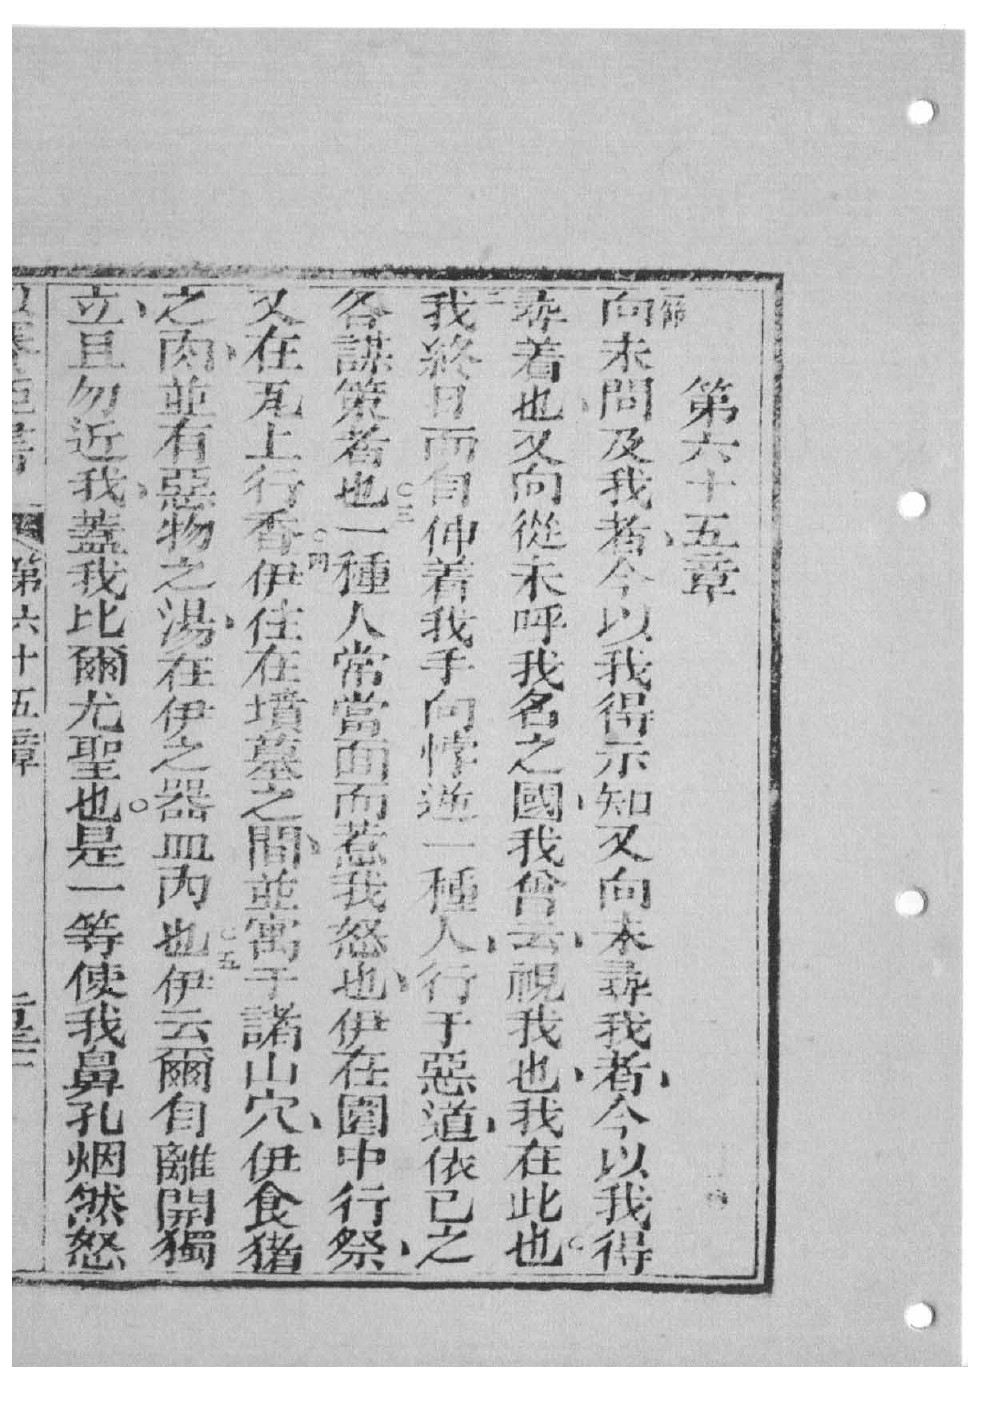 第六十五章
向未問及我者、今以我得示知又向未尋我者、今以我得
尋着也、又向從未呼我名之國、我曾云、視我也、我在此也。
我終日而自伸着我手向悖逆一種人、行于惡道、依己之
各謀策者也○三一種人常當面而惹我怒也、伊在園中行祭、
又在瓦上行香○四伊住在墳墓之間、並寓于諸山穴、伊食猪
之肉、並有惡物之湯、在伊之器皿內也○五伊云爾自離開獨
立、且勿近我、蓋我比爾尤聖也。是一等使我鼻孔烟然怒
書 第六十五章